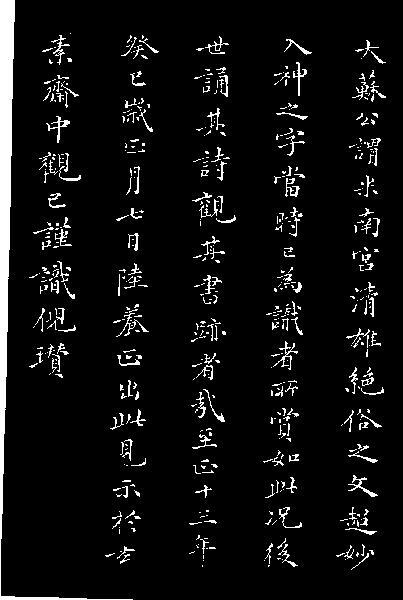 大蘇公謂米南宮清雄絕俗之文超妙
入神之字當時已為識者所賞如此况後
世誦其詩觀其書跡者哉至正十三年
癸巳歲正月七日陸養正出此見示於玄
素齋中觀已謹識倪瓚